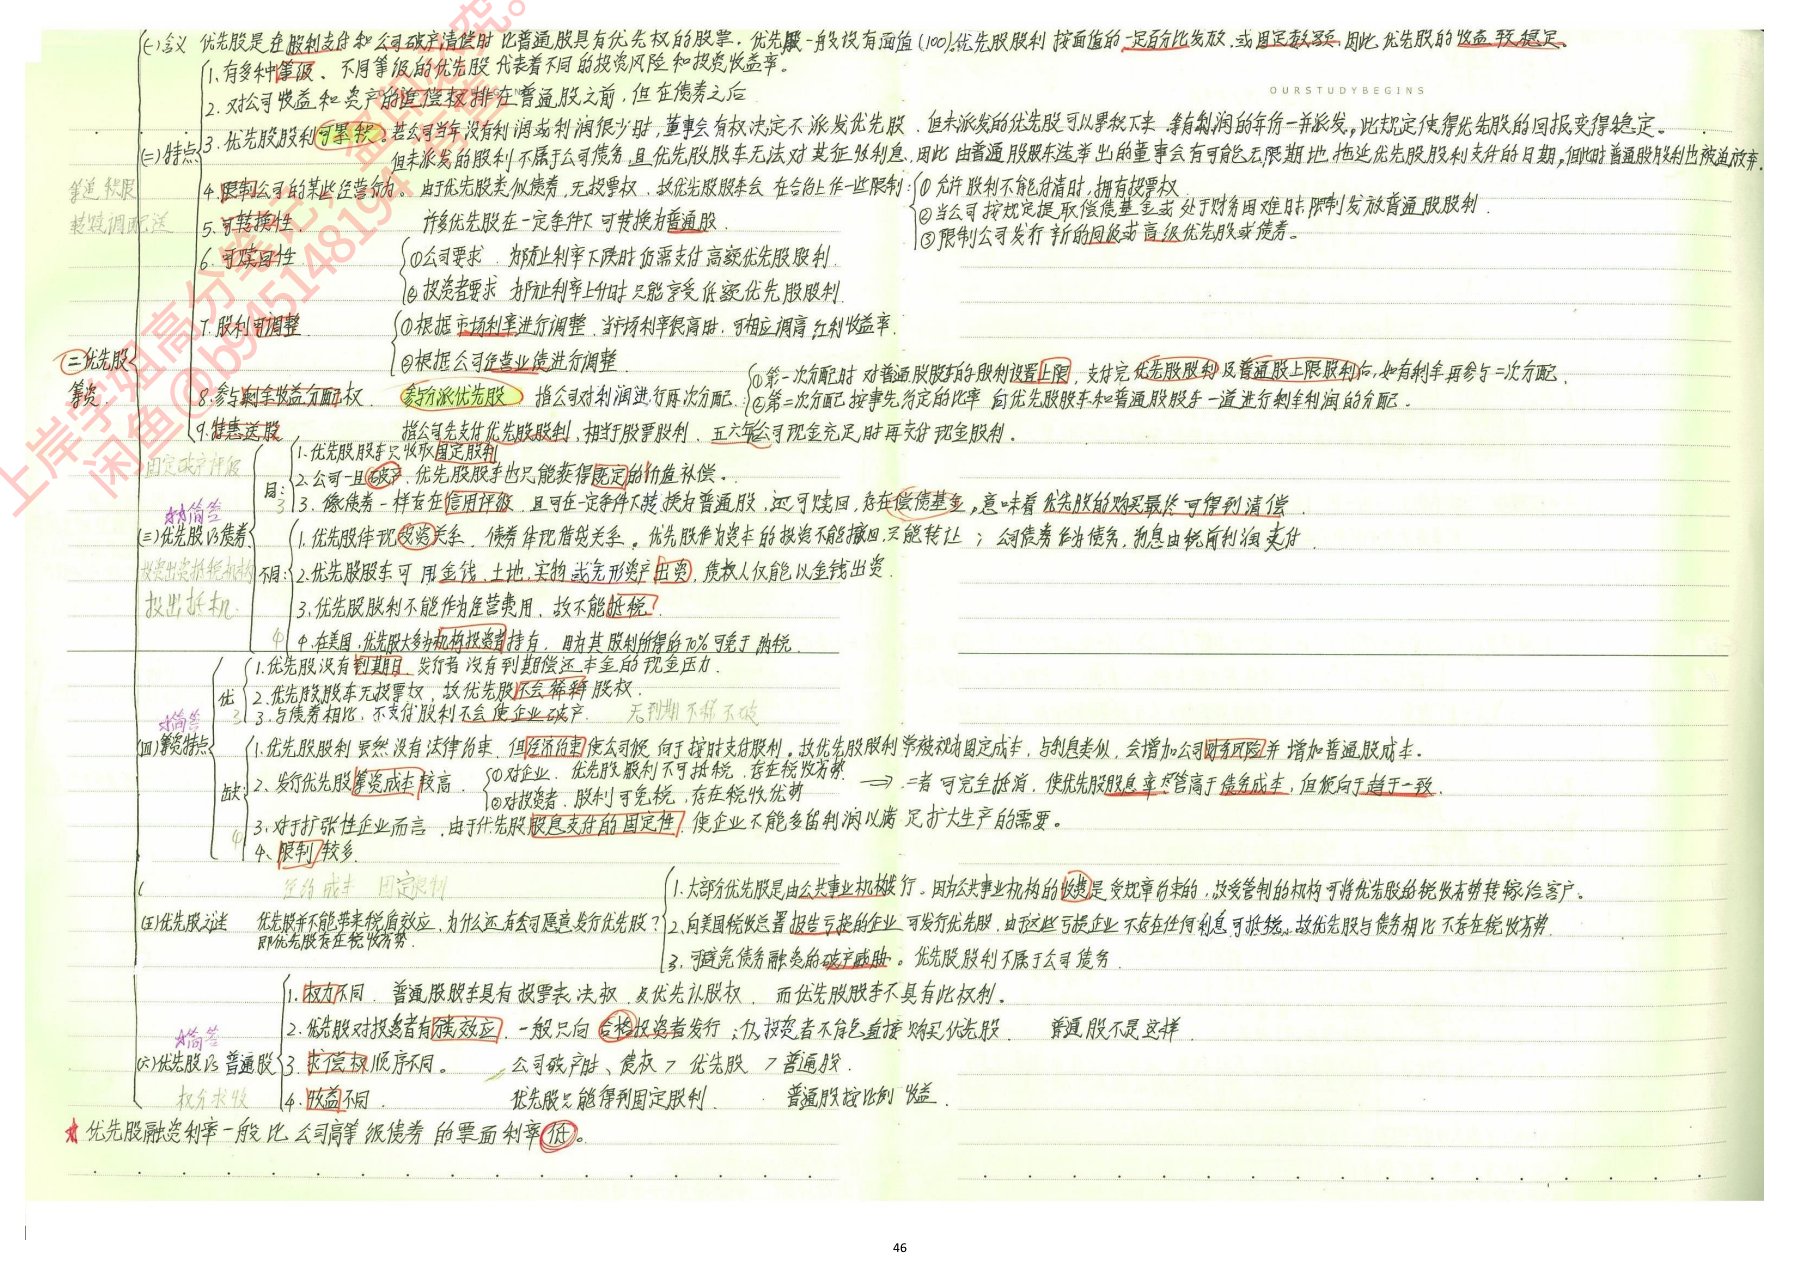 (一)含义 优先股是在股利支付和公司破产清偿时比普通股具有优先权的股票。优先股一般设有面值(100)。优先股股利按面值的一定百分比发放,或固定数额,因此,优先股的收益较稳定。
1.有多种等级、不同等级的优先股代表着不同的投资风险和投资收益率。
OURSTUDYBEGINS
2.对公司收益和资产的追偿权排在普通股之前,但在债券之后
3.优先股股利可累积。若公司当年没有利润或利润很少时,董事会有权决定不派发优先股,但未派发的优先股可以累积下来,等有利润的年份一并派发,此规定使得优先股的回报变得稳定。
(二)特点
但未派发的股利不属于公司债务,且优先股股东无法对其征收利息,因此由普通股股东选举出的董事会有可能无限期地拖延优先股股利支付的日期,但此时普通股股利也被迫放弃.
4.限制公司的某些经营行为。由于优先股类似债券,无投票权,故优先股股东会在合约上作一些限制:①允许股利不能付清时,拥有投票权
②当公司按规定提取偿债基金或处于财务困难时,限制发放普通股股利.
③限制公司发行新的同级或高级优先股或债券。
等追积限
转赎调配送
5.可转换性 许多优先股在一定条件下可转换为普通股.
6.可赎回性 ①公司要求 为防止利率下跌时仍需支付高额优先股股利.
②投资者要求 为防止利率上升时只能享受低额优先股股利.
7.股利可调整 ①根据市场利率进行调整.当市场利率很高时,可相应调高红利收益率.
②根据公司经营业绩进行调整
二优先股
筹资.
8.参与剩余收益分配权. 参与分派优先股 指公司对利润进行两次分配.
①第一次分配时 对普通股股东的股利设置上限,支付完优先股股利及普通股上限股利后,如有剩余再参与二次分配.
②第二次分配按事先约定的比率 向优先股股东和普通股股东一道进行剩余利润的分配.
9.特惠送股 指公司先支付优先股股利,相当于股票股利,五六年公司现金充足时再支付现金股利。
固定破产评级
同:3
1.优先股股东只收取固定股利
2.公司一旦破产,优先股股东也只能获得既定的价值补偿。
3.像债券一样存在信用评级,且可在一定条件下转换为普通股,还可赎回,存在偿债基金,意味着优先股的购买最终可得到清偿.
☆简答
(三)优先股VS债券
投资出资抵税机构
投出抵机.
不同:④
1.优先股体现投资关系,债券体现借贷关系。优先股作为资本的投资不能撤回,只能转让;公司债券作为债务,利息由税前利润支付.
2.优先股股东可用金钱、土地、实物或无形资产出资,债权人仅能以金钱出资.
3.优先股股利不能作为经营费用,故不能抵税.
4.在美国,优先股大多为机构投资者持有,因为其股利所得的70%可免于纳税.
优3
1.优先股没有到期日,发行者没有到期偿还本金的现金压力.
2.优先股股东无投票权,故优先股不会稀释股权.
3.与债券相比,不支付股利不会使企业破产. 无到期不稀不破
☆简答
(四)筹资特点
缺:④
1.优先股股利虽然没有法律约束,但经济约束使公司倾向于按时支付股利。故优先股股利常被视为固定成本,与利息类似,会增加公司财务风险并增加普通股成本.
2.发行优先股筹资成本较高. ①对企业,优先股股利不可抵税,存在税收劣势.
②对投资者,股利可免税,存在税收优势
→ 二者可完全抵消,使优先股股息率尽管高于债务成本,但倾向于趋于一致.
3.对于扩张性企业而言,由于优先股股息支付的固定性,使企业不能多留利润以满足扩大生产的需要。
4、限制较多.
经约成本 固定限制
(五)优先股之谜 优先股并不能带来税盾效应,为什么还有公司愿意发行优先股?
即优先股存在税收劣势.
1.大部分优先股是由公共事业机构发行。因为公共事业机构的收费是受规章约束的,故受管制的机构可将优先股的税收劣势转嫁给客户。
2.向美国税收总署报告亏损的企业可发行优先股,由于这些亏损企业不存在任何利息可抵税,故优先股与债务相比不存在税收劣势
3.可避免债务融资的破产威胁。优先股股利不属于公司债务.
1.权力不同. 普通股股东具有投票表决权及优先认股权. 而优先股股东不具有此权利。
☆简答
(六)优先股VS普通股
权分求收
2.优先股对投资者有分类效应.一般只向合格投资者发行,个人投资者不能直接购买优先股 普通股不是这样
3.求偿权顺序不同。 公司破产时、债权>优先股>普通股.
4.收益不同. 优先股只能得到固定股利. 普通股按比例收益.
★优先股融资利率一般比公司高等级债券的票面利率低。
上岸学姐高分笔记
闲鱼@b945148194
46